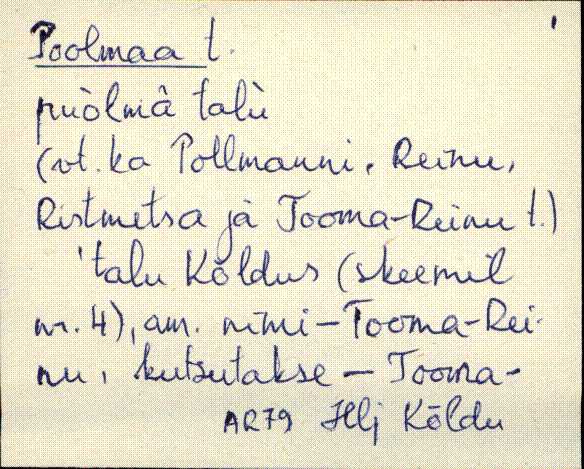 Poolmaa t.
puòlmā̂ talù
(vt. ka Pollmanni, Reinu,
Ristmetsa ja Tooma-Reinu t.)
'talu Kõldus (skeemil
nr. 4), am. nimi – Tooma-Rei-
nu, kutsutakse – Tooma-
AR79 Hlj Kõldu